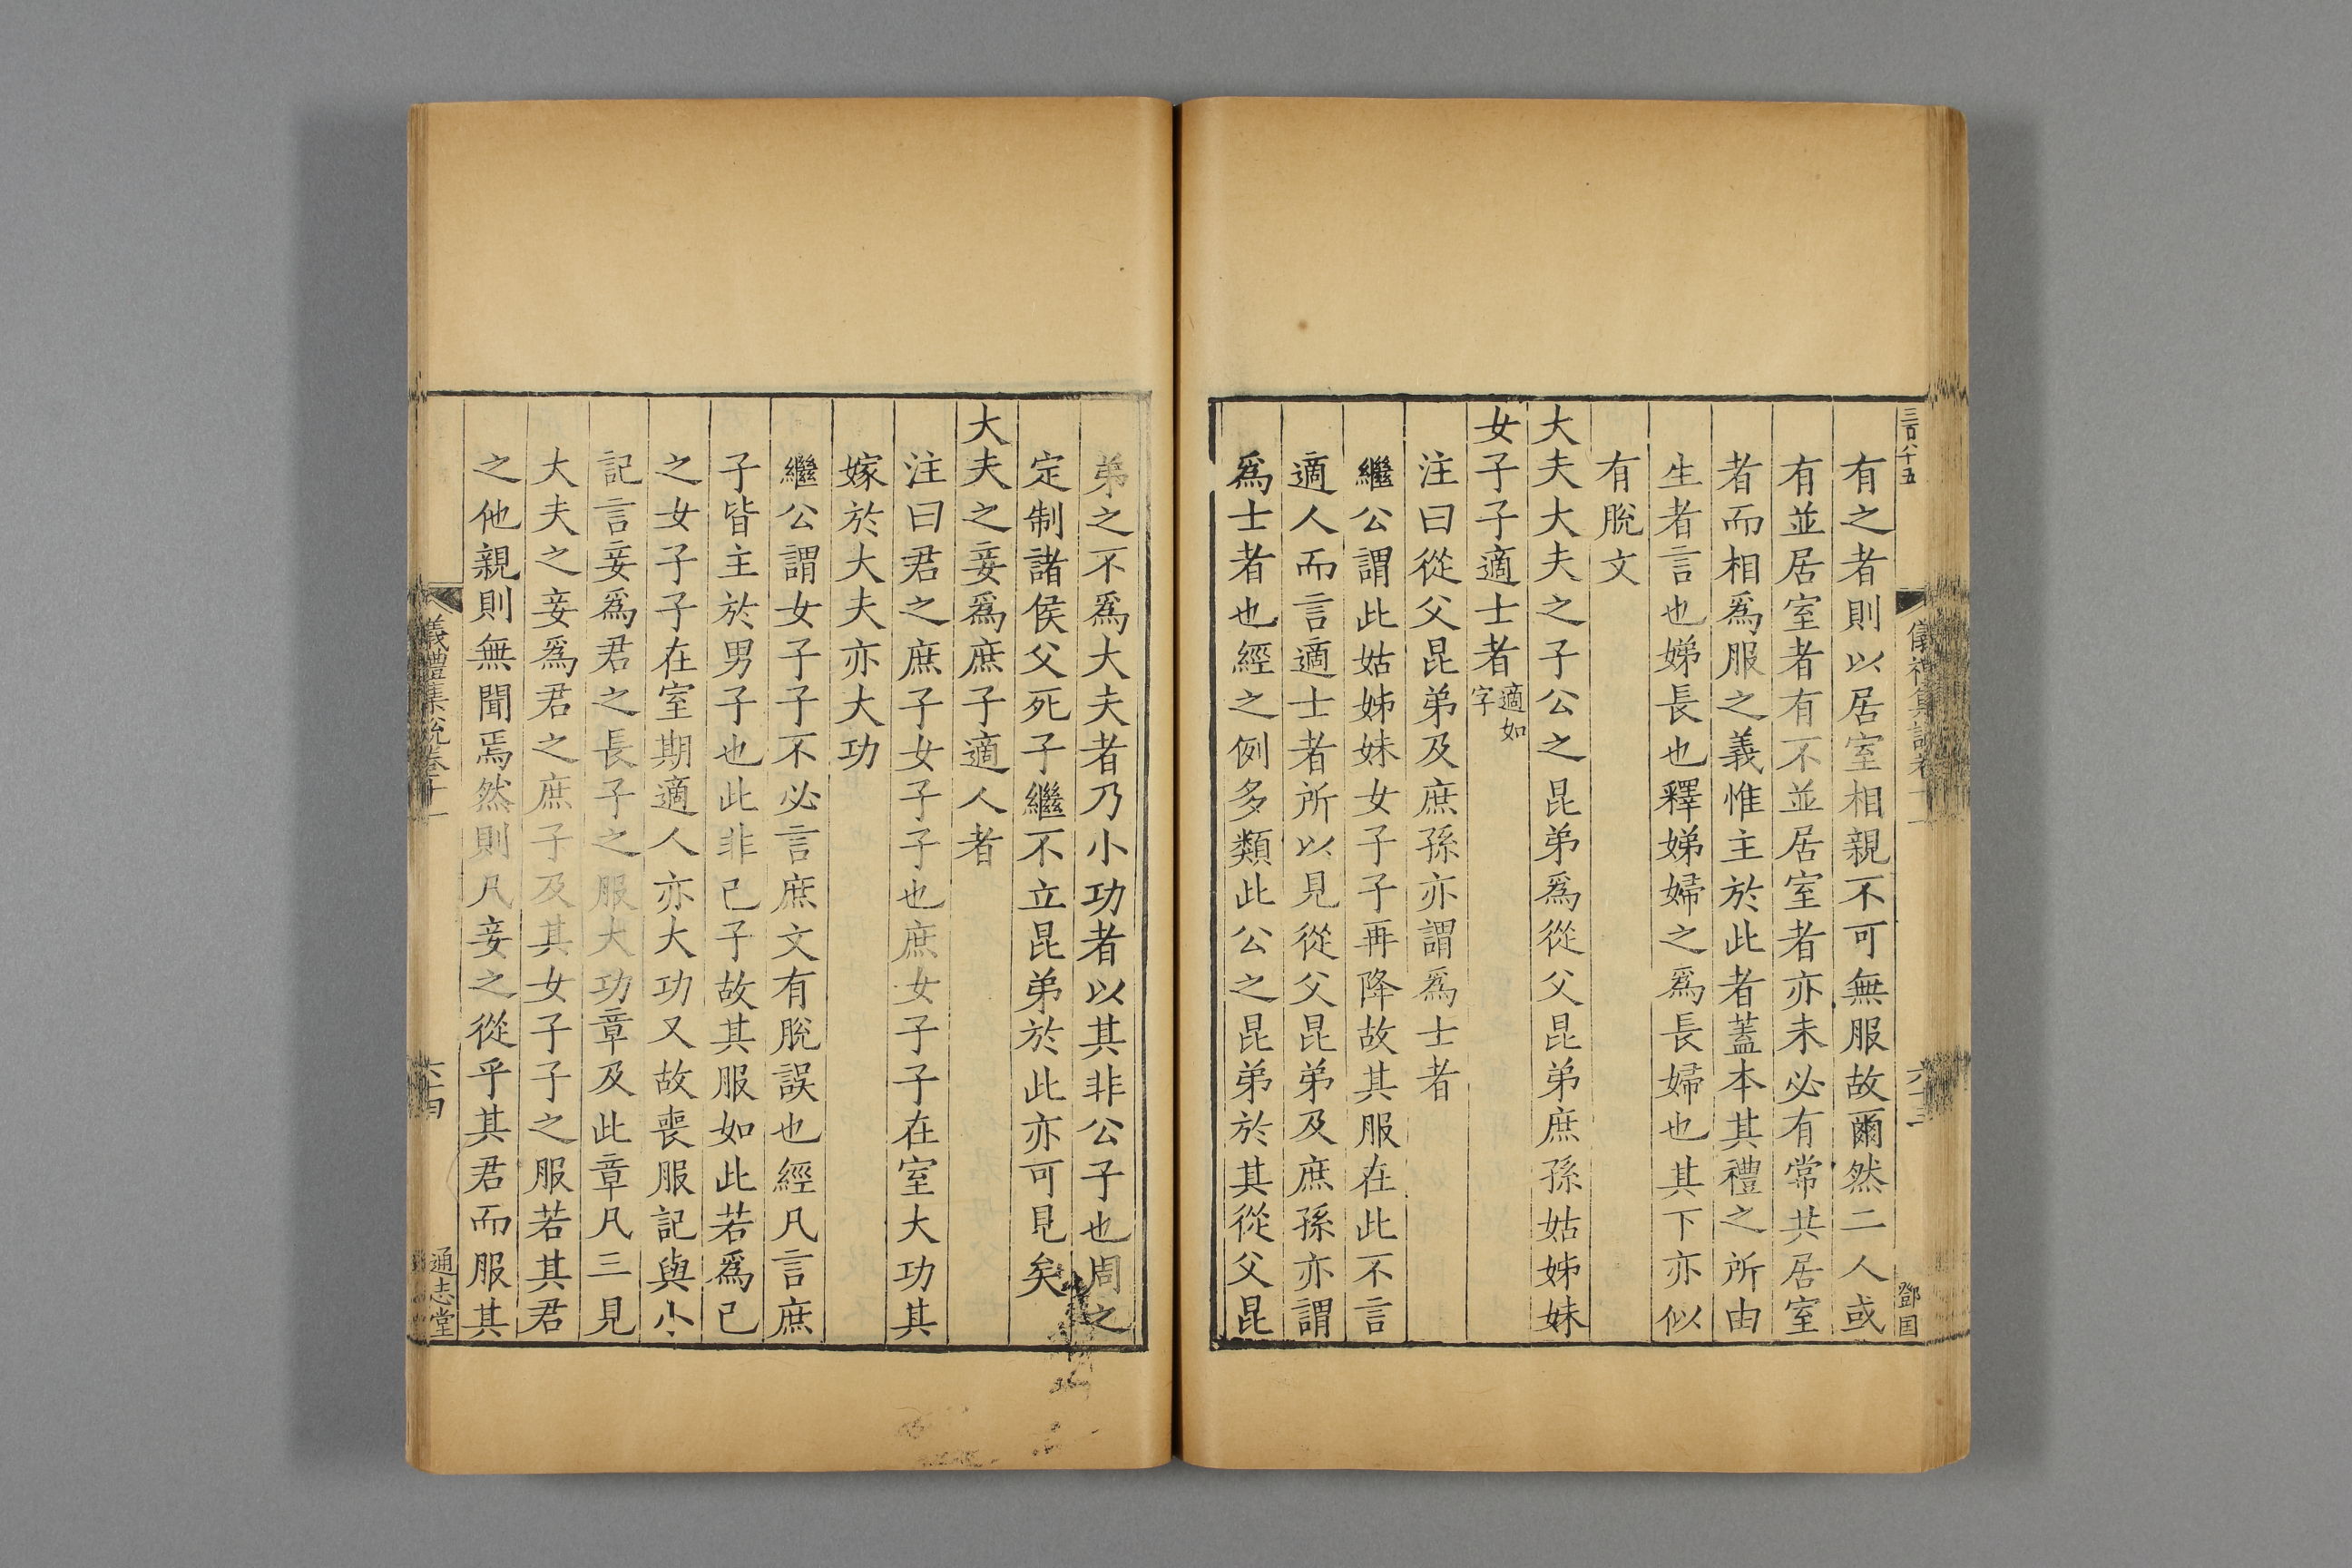 三百八十五
儀禮集說卷十一
六十三
鄧国
有之者則以居室相親不可無服故爾然二人或
有並居室者有不並居室者亦未必有常共居室
者而相爲服之義惟主於此者蓋本其禮之所由
生者言也娣長也釋娣婦之爲長婦也其下亦似
有脫文
大夫大夫之子公之昆弟爲從父昆弟庶孫姑姊妹
女子子適士者適如字
注曰從父昆弟及庶孫亦謂爲士者
繼公謂此姑姊妹女子子再降故其服在此不言
適人而言適士者所以見從父昆弟及庶孫亦謂
爲士者也經之例多類此公之昆弟於其從父昆
弟之不爲大夫者乃小功者以其非公子也周之
定制諸侯父死子繼不立昆弟於此亦可見矣
大夫之妾爲庶子適人者
注曰君之庶子女子子也庶女子子在室大功其
嫁於大夫亦大功
繼公謂女子子不必言庶文有脫誤也經凡言庶
子皆主於男子也此非己子故其服如此若爲己
之女子子在室期適人亦大功又故喪服記與小
記言妾爲君之長子之服大功章及此章凡三見
大夫之妾爲君之庶子及其女子子之服若其君
之他親則無聞焉然則凡妾之從乎其君而服其
儀禮集說卷十一
六十四
通志堂